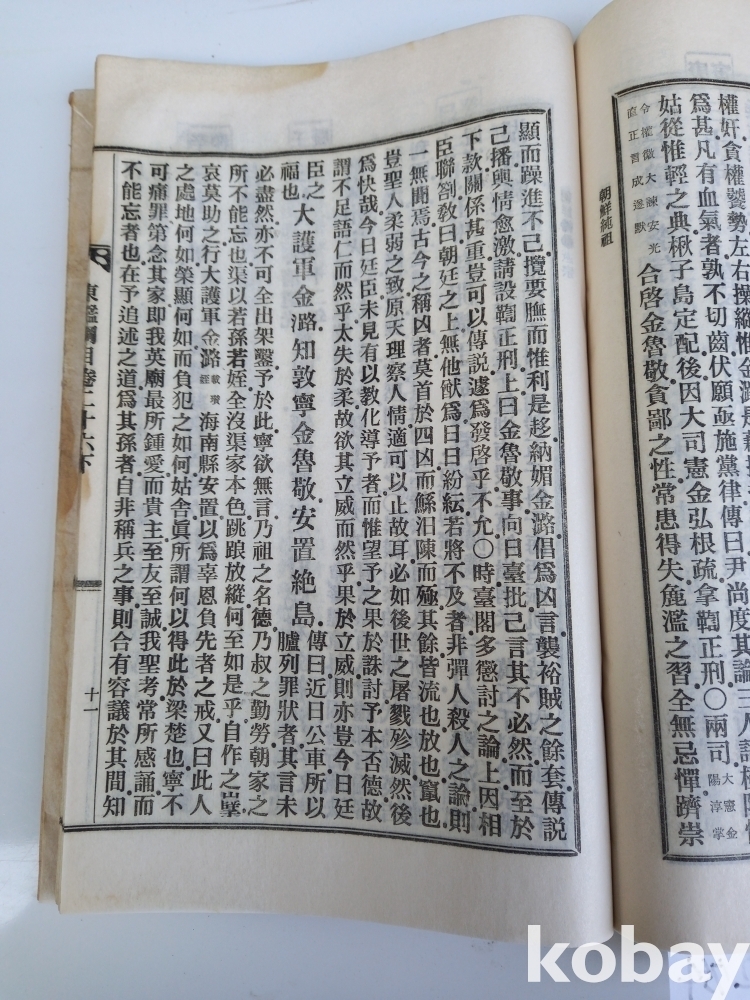 權奸貪權饕勢左右操縱惟金潞是
爲甚凡有血氣者孰不切齒伏願亟施黨律傳曰尹尚度其論三人請極
姑從惟輕之典楸子島定配後因大司憲金弘根疏拿鞫正刑○兩司大憲金陽淳掌
令權徵大諫安光直正言成遂默合啓金魯敬貪鄙之性常患得失麄濫之習全無忌憚躋崇
朝鮮純祖
顯而躁進不己攬要膴而惟利是趍納媚金潞倡爲凶言襲裕賊之餘套傳說
己播輿情愈激請設鞫正刑上曰金魯敬事向日臺批己言其不必然而至於
下款關係甚重豈可以傳說遽爲發啓乎不允○時臺閣多懲討之論上因相
臣聯劄敎曰朝廷之上無他猷爲日日紛紜若將不及者非彈人殺人之論則
一無聞焉古今之稱凶者莫首於四凶而鯀汨陳而殛其餘皆流也放也竄也
豈聖人柔弱之致原天理察人情適可以止故耳必如後世之屠戮殄滅然後
爲快哉今日廷臣未見有以敎化導予者而惟望予之果於誅討予本否德故
謂不足語仁而然乎太失於柔故欲其立威而然乎果於立威則亦豈今日廷
臣之福也大護軍金潞知敦寧金魯敬安置絶島傳曰近日公車所以臚列罪狀者其言未
必盡然亦不可全出架鑿予於此寧欲無言乃祖之名德乃叔之勤勞朝家之
所不能忘也渠以若孫若姪全沒渠家本色跳踉放縱何至如是乎自作之孼
哀莫助之行大護軍金潞載瓚姪海南縣安置以爲辜恩負先者之戒又曰此人
之處地何如榮顯何如而負犯之如何姑舍眞所謂何以得此於梁楚也寧不
可痛罪第念其家即我英廟最所鍾愛而貴主至友至誠我聖考常所感誦而
不能忘者也在予追述之道爲其孫者自非稱兵之事則合有容議於其間知
東鑑綱目卷二十六下
十一
kobay